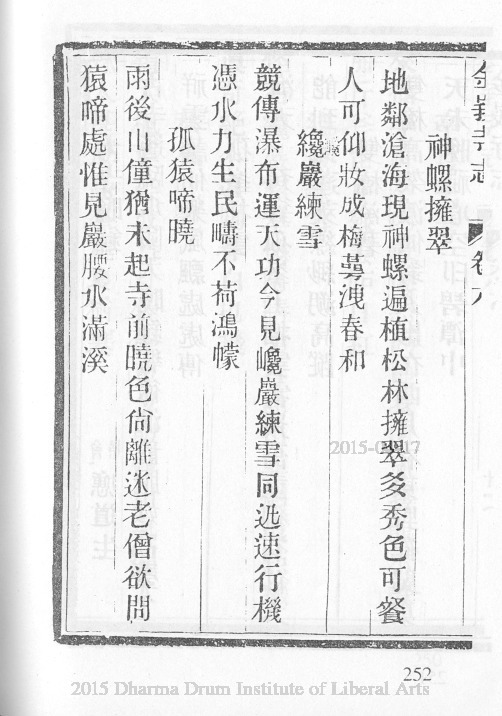 金峩寺志 卷八
神螺擁翠
地鄰滄海現神螺遍植松林擁翠多秀色可餐
人可仰妝成梅萼洩春和
纔巖練雪
競傳瀑布運天功今見巉巖練雪同迅速行機
憑水力生民疇不荷鴻幪
孤猿啼曉
雨後山僮猶未起寺前曉色尙離迷老僧欲問
猿啼處惟見巖腰水滿溪
252
2015 Dharma Drum Institute of Liberal Arts